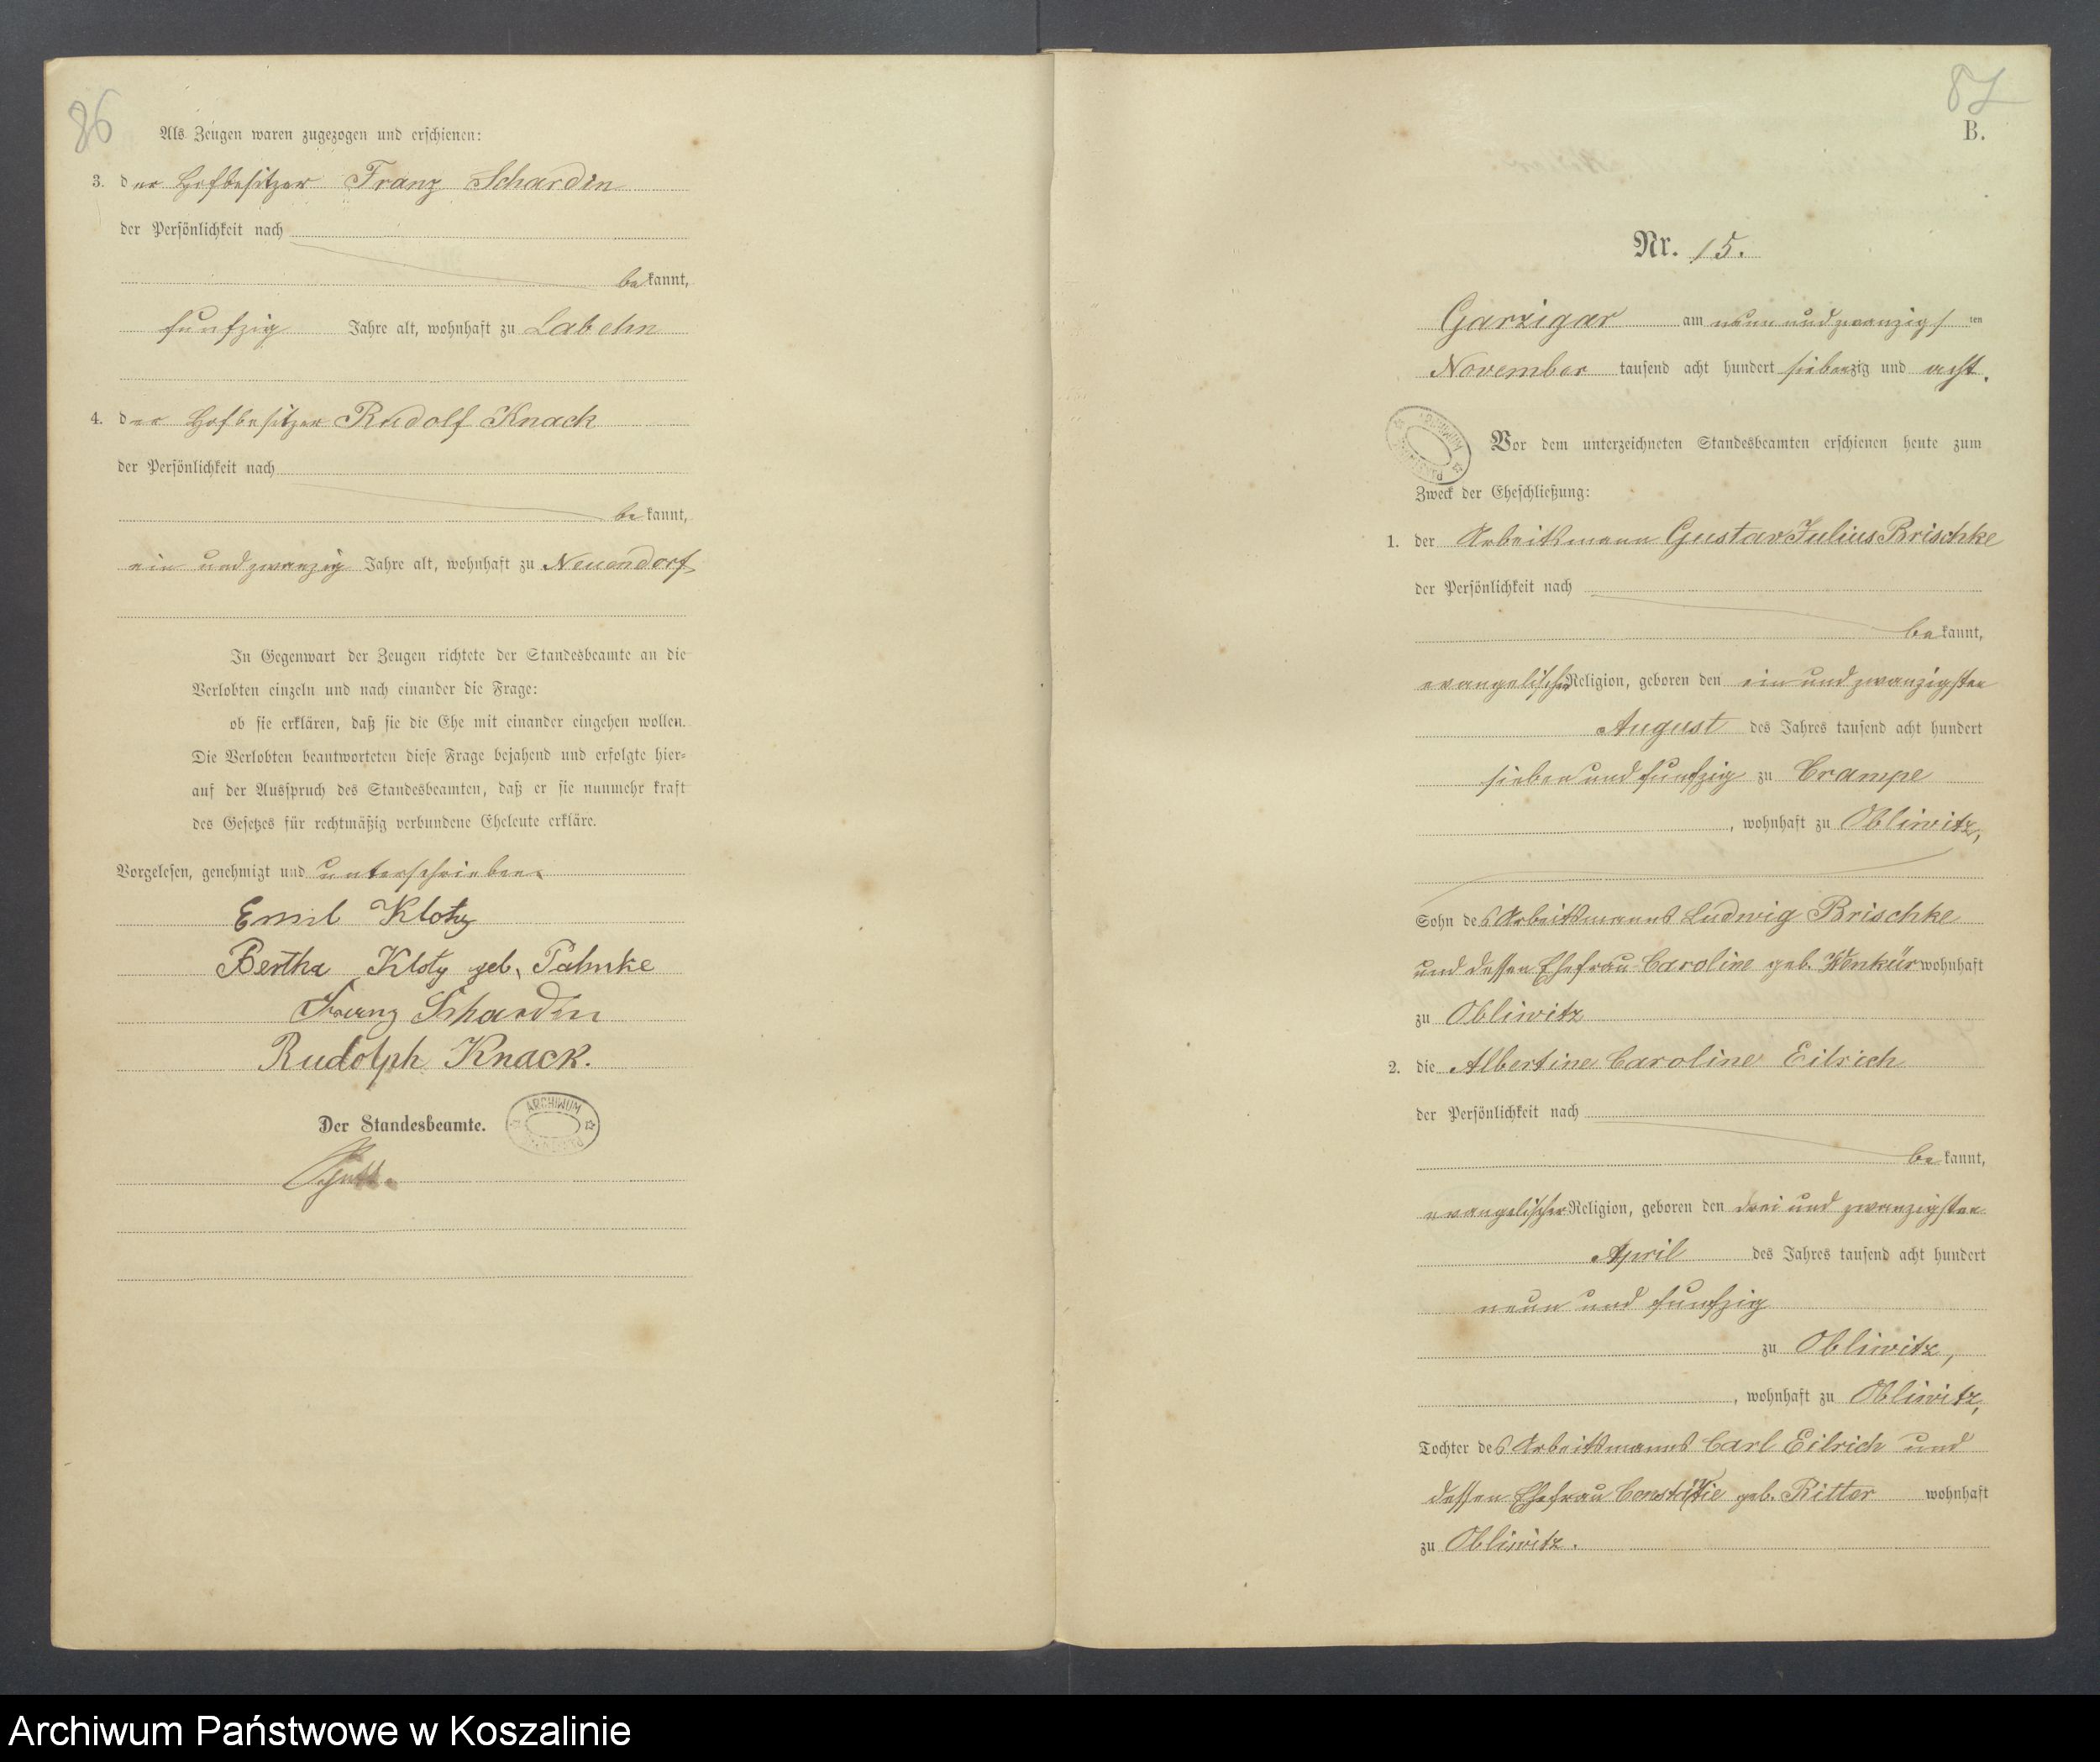 86
Als Zeugen waren zugezogen und erschienen:
3. der Hofbesitzer Franz Schardin
der Persönlichkeit nach
bekannt,
funfzig Jahre alt, wohnhaft zu Labehn
4. der Hofbesitzer Rudolf Knack
der Persönlichkeit nach
bekannt,
ein und zwanzig Jahre alt, wohnhaft zu Neuendorf
In Gegenwart der Zeugen richtete der Standesbeamte an die
Verlobten einzeln und nach einander die Frage:
ob sie erklären, daß sie die Ehe mit einander eingehen wollen.
Die Verlobten beantworteten diese Frage bejahend und erfolgte hier-
auf der Ausspruch des Standesbeamten, daß er sie nunmehr kraft
des Gesetzes für rechtmäßig verbundene Eheleute erkläre.
Vorgelesen, genehmigt und unterschrieben.
Emil Klotz
Bertha Klotz geb. Pahnke
Franz Schardin
Rudolph Knack.
Der Standesbeamte.
ARCHIWUM
87
B.
Nr. 15.
Garzigar am neun und zwanzigsten
November tausend acht hundert siebenzig und acht.
Vor dem unterzeichneten Standesbeamten erschienen heute zum
Zweck der Eheschließung:
1. der Arbeitsmann Gustav Julius Brischke
der Persönlichkeit nach
bekannt,
evangelischer Religion, geboren den ein und zwanzigsten
August des Jahres tausend acht hundert
sieben und funfzig zu Crampe
, wohnhaft zu Obliwitz,
Sohn des Arbeitsmanns Ludwig Brischke
und dessen Ehefrau Caroline geb. Wenkür wohnhaft
zu Obliwitz
2. die Albertine Caroline Eilrich
der Persönlichkeit nach
bekannt,
evangelischer Religion, geboren den drei und zwanzigsten
April des Jahres tausend acht hundert
neun und funfzig
zu Obliwitz,
, wohnhaft zu Obliwitz,
Tochter des Arbeitsmanns Carl Eilrich und
dessen Ehefrau geb. Ritter wohnhaft
zu Obliwitz.
Archiwum Państwowe w Koszalinie